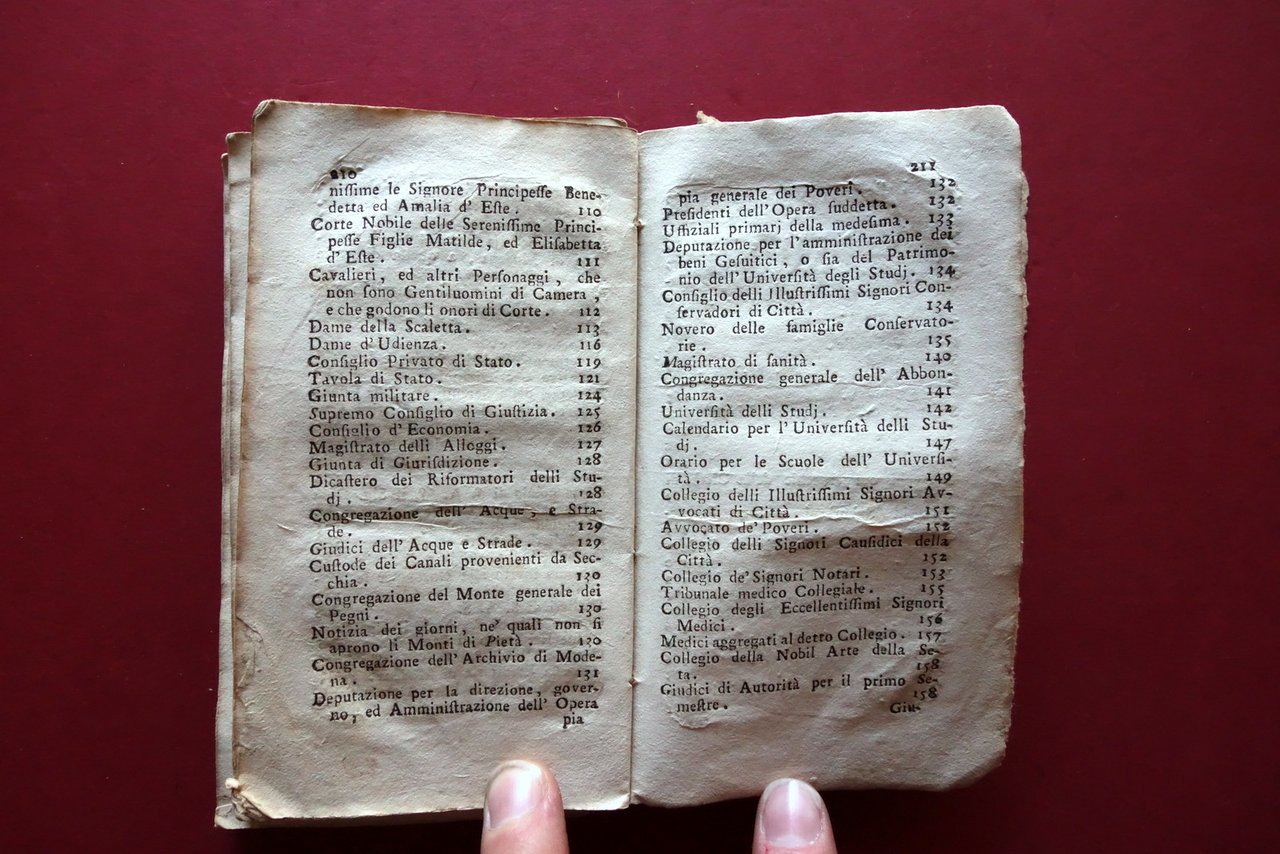 210
nissime le Signore Principesse Bene-
detta ed Amalia d' Este. 110
Corte Nobile delle Serenissime Princi-
pesse Figlie Matilde, ed Elisabetta
d' Este. 111
Cavalieri, ed altri Personaggi, che
non sono Gentiluomini di Camera,
e che godono li onori di Corte. 112
Dame della Scaletta. 113
Dame d'Udienza. 116
Consiglio Privato di Stato. 119
Tavola di Stato. 121
Giunta militare. 124
Supremo Consiglio di Giustizia. 125
Consiglio d'Economia. 126
Magistrato delli Alloggi. 127
Giunta di Giurisdizione. 128
Dicastero dei Riformatori delli Stu-
dj. 128
Congregazione dell' Acque, e Stra-
de. 129
Giudici dell'Acque e Strade. 129
Custode dei Canali provenienti da Sec-
chia. 130
Congregazione del Monte generale dei
Pegni. 130
Notizia dei giorni, ne' quali non si
aprono li Monti di Pietà. 130
Congregazione dell'Archivio di Mode-
na. 131
Deputazione per la direzione, gover-
no, ed Amministrazione dell' Opera
pia
211
pia generale dei Poveri. 132
Presidenti dell'Opera suddetta. 132
Uffiziali primarj della medesima. 133
Deputazione per l'amministrazione dei
beni Gesuitici, o sia del Patrimo-
nio dell'Università degli Studj. 134
Consiglio delli Illustrissimi Signori Con-
servadori di Città. 134
Novero delle famiglie Conservato-
rie. 135
Magistrato di sanità. 140
Congregazione generale dell' Abbon-
danza. 141
Università delli Studj. 142
Calendario per l'Università delli Stu-
dj. 147
Orario per le Scuole dell' Universi-
tà. 149
Collegio delli Illustrissimi Signori Av-
vocati di Città. 151
Avvocato de' Poveri. 152
Collegio delli Signori Causidici della
Città. 152
Collegio de' Signori Notari. 153
Tribunale medico Collegiale. 155
Collegio degli Eccellentissimi Signori
Medici. 156
Medici aggregati al detto Collegio. 157
Collegio della Nobil Arte della Se-
ta. 158
Giudici di Autorità per il primo Se-
mestre. 158
Giu-